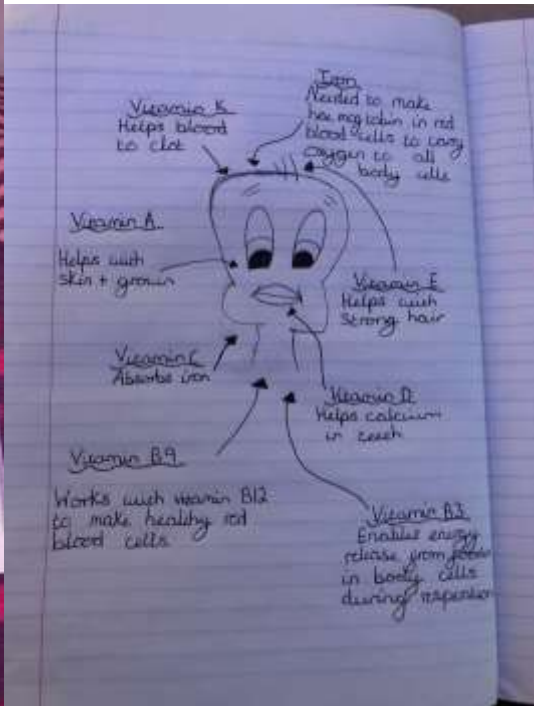 Vitamin K
Helps blood
to clot
Iron
Needed to make
haemoglobin in red
blood cells to carry
oxygen to all
body cells
Vitamin A
Helps with
skin + growth
Vitamin E
Helps with
strong hair
Vitamin C
Absorbs iron
Vitamin D
Helps calcium
in teeth
Vitamin B9
Works with vitamin B12
to make healthy red
blood cells
Vitamin B3
Enables energy
release from foods
in body cells
during respiration